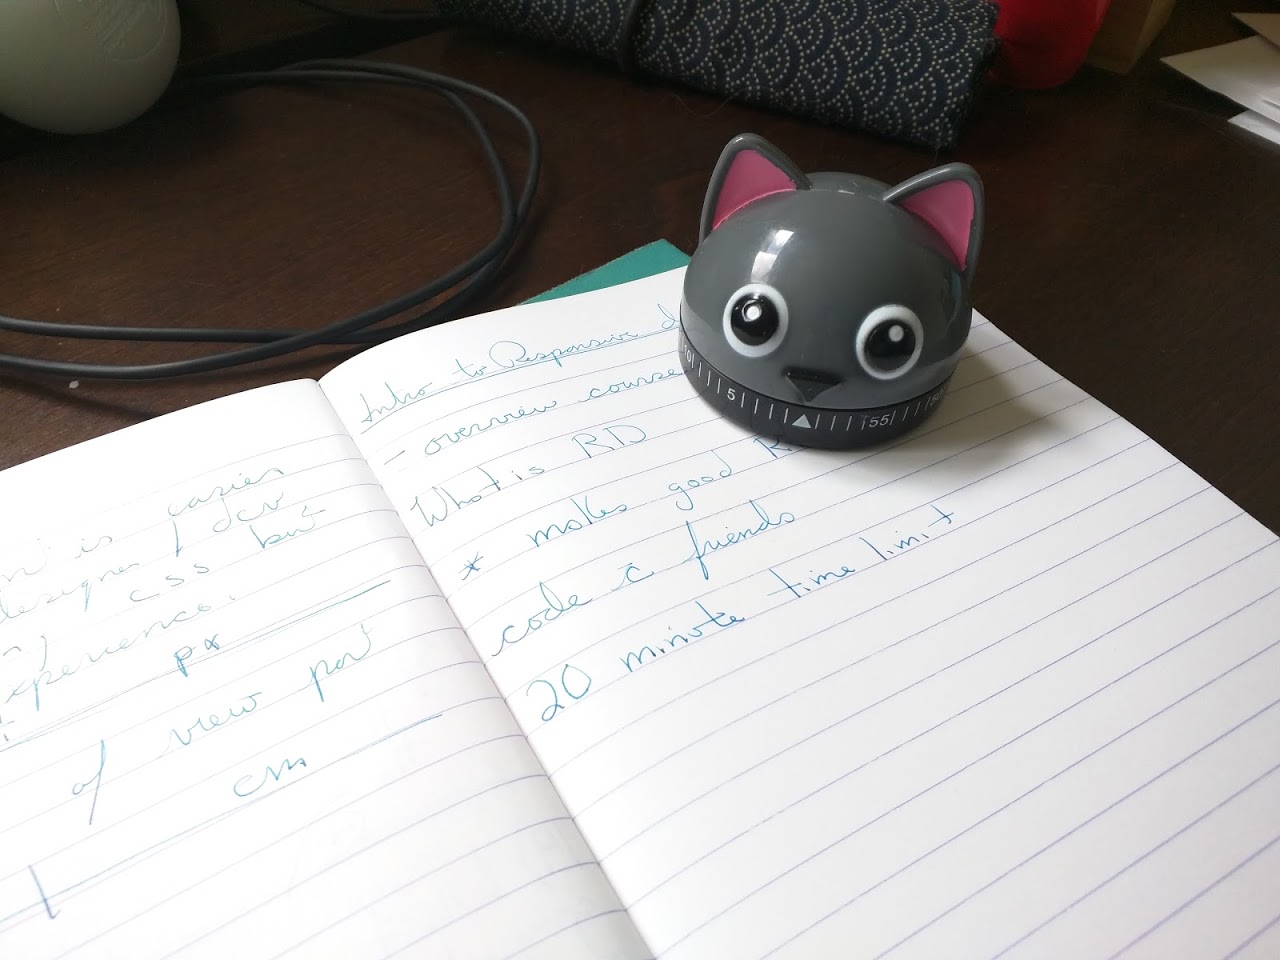 is easier
designer / dev
css but
experience.
px
of view port
cm
Intro to Responsive d
- overview course
What is RD
* makes good R
code c̄ friends
20 minute time limit
10 5 55 50